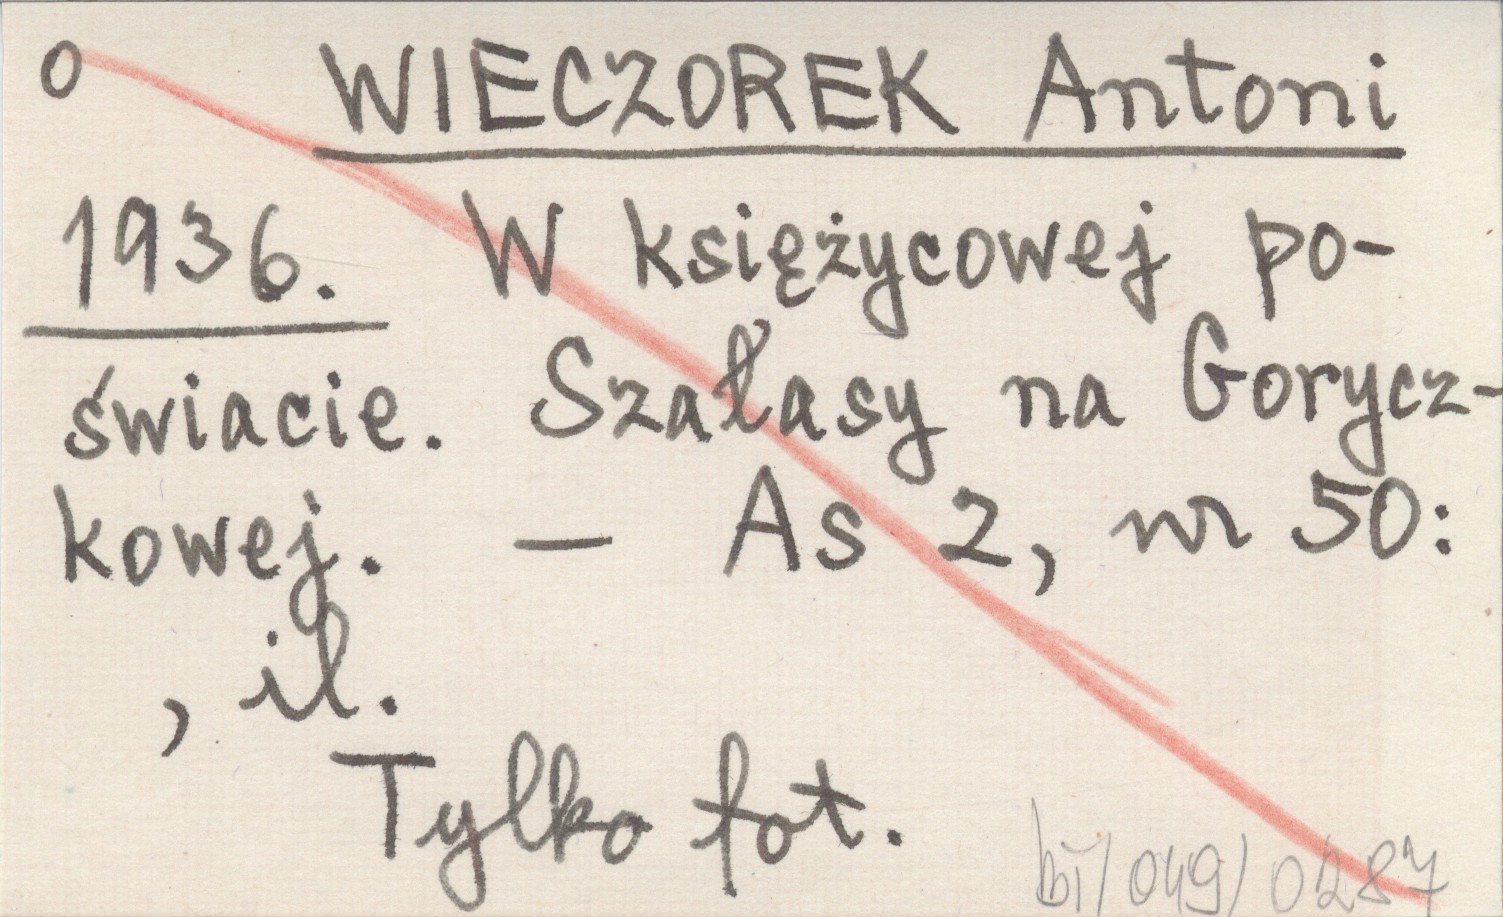 o WIECZOREK Antoni
1936. W księżycowej po-
świacie. Szałasy na Gorycz-
kowej. – As 2, nr 50:
, il.
Tylko fot.
bi/049/0287